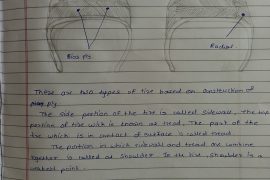 Bias Ply
Radial
These are two types of tire based on construction of
ply.
The side portion of the tire is called sidewall. The top
portion of tire wich is known as tread. The part of the
tire which is in contact of surface is called tread.
The portion in which sidewall and tread are combine
together is called as shoulder. In the tire, shoulder is a
weakest point.